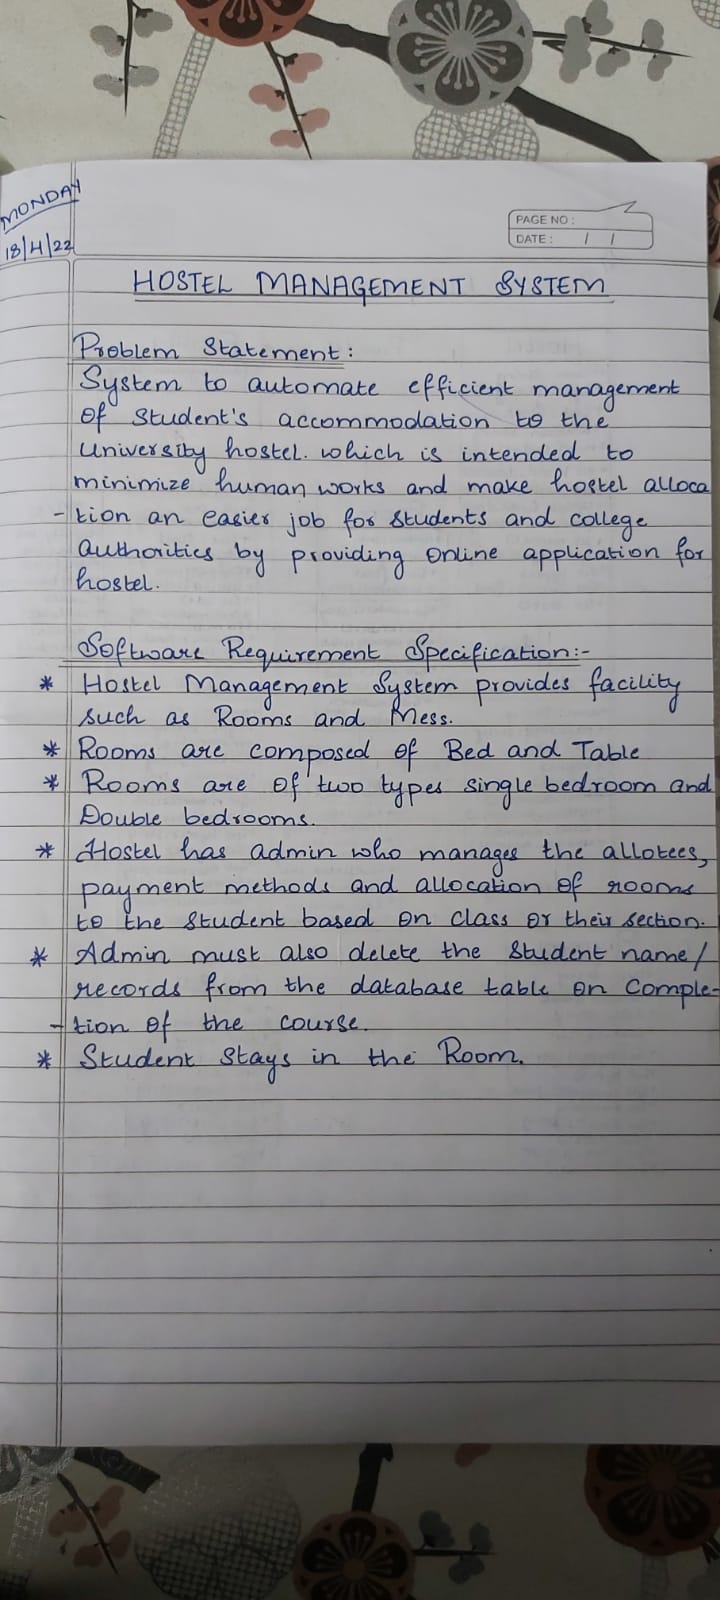 MONDAY
18/4/22
PAGE NO :
DATE : / /
HOSTEL MANAGEMENT SYSTEM
Problem Statement :
System to automate efficient management
of Student's accommodation to the
University hostel. which is intended to
minimize human works and make hostel alloca
-tion an easier job for students and college
authorities by providing online application for
hostel.
Software Requirement Specification:-
* Hostel Management System provides facility
such as Rooms and Mess.
* Rooms are composed of Bed and Table
* Rooms are of two types single bedroom and
Double bedrooms.
* Hostel has admin who manages the allotees,
payment methods and allocation of rooms
to the student based on class or their section.
* Admin must also delete the Student name/
records from the database table on Comple-
-tion of the course.
* Student Stays in the Room.